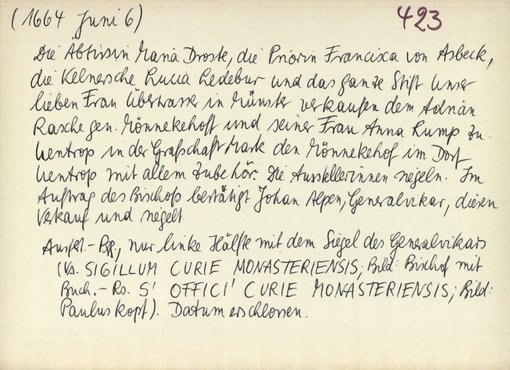 (1664 Juni 6) 423
Die Äbtissin Maria Droste, die Priorin Francisca von Asbeck,
die Kelnersche Lucia Ledebur und das ganze Stift Unser
lieben Frau Überwasser in Münster verkaufen dem Adrian
Rasche gen. Mönnekehoff und seiner Frau Anna Rump zu
Uentrop in der Grafschaft Mark den Mönnekehof im Dorf
Uentrop mit allem Zubehör. Die Ausstellerinnen siegeln. Im
Auftrag des Bischofs bestätigt Johan Alpen, Generalvikar, diesen
Verkauf und siegelt.
Ausf.- Pg., nur linke Hälfte mit dem Siegel des Generalvikars
(Vs. SIGILLUM CURIE MONASTERIENSIS; Bild: Bischof mit
Buch.- Rs. S' OFFICI' CURIE MONASTERIENSIS; Bild:
Pauluskopf). Datum erschlossen.